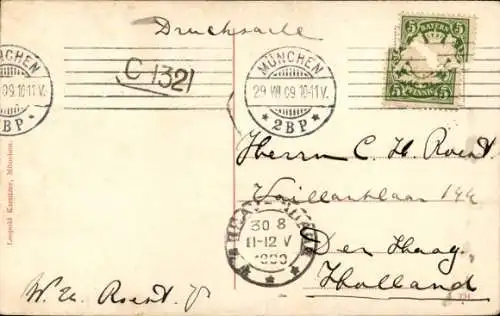 Drucksache
5 BAYERN 5
MÜNCHEN
29. VII. 09. 10-11 V.
* 2BP *
NCHEN
09. 10-11 V.
2BP *
C 1321
Herrn C. H. Roest
144
Den Haag.
Holland
30 8
11-12 V
Roest Jr
Leopold München.